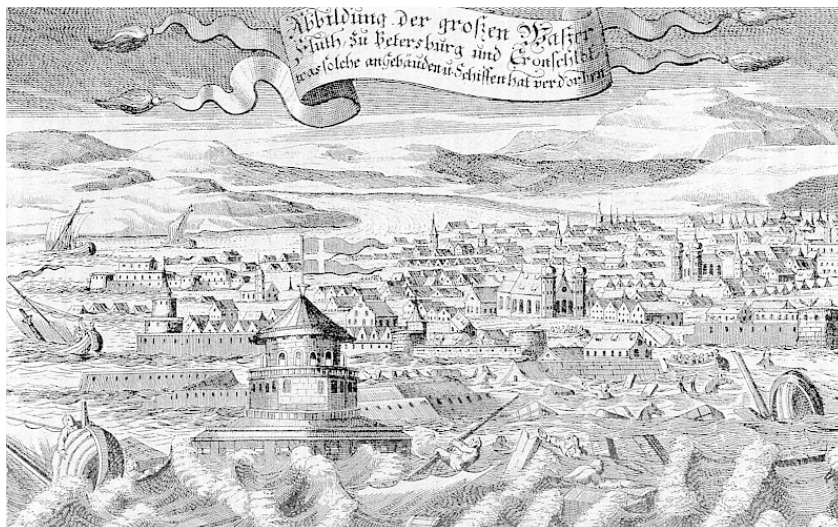 Abbildung der großen Waßer
Fluth, zu Petersburg und Cronschlot
was solche an gebäuden u. Schiffen hat verdorben